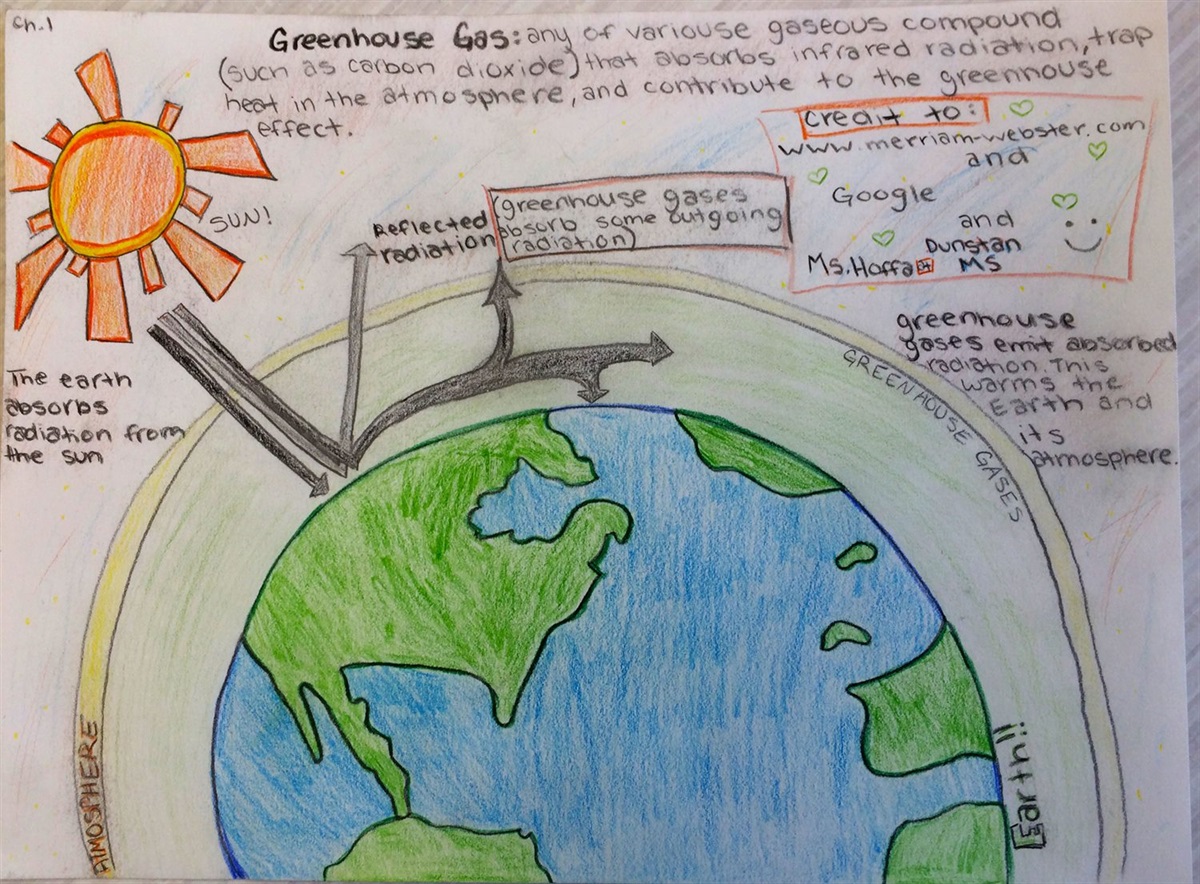 Ch.1
Greenhouse Gas: any of variouse gaseous compound
(such as carbon dioxide) that absorbs infrared radiation, trap
heat in the atmosphere, and contribute to the greenhouse
effect.
Credit to:
www.merriam-webster.com
and
Google
and
Dunstan
Ms. Hoffa MS
SUN!
Reflected
radiation
(greenhouse gases
absorb some outgoing
radiation)
greenhouse
gases emit absorbed
radiation. This
warms the
Earth and
its
atmosphere.
The earth
absorbs
radiation from
the sun
GREENHOUSE GASES
ATMOSPHERE
Earth!!